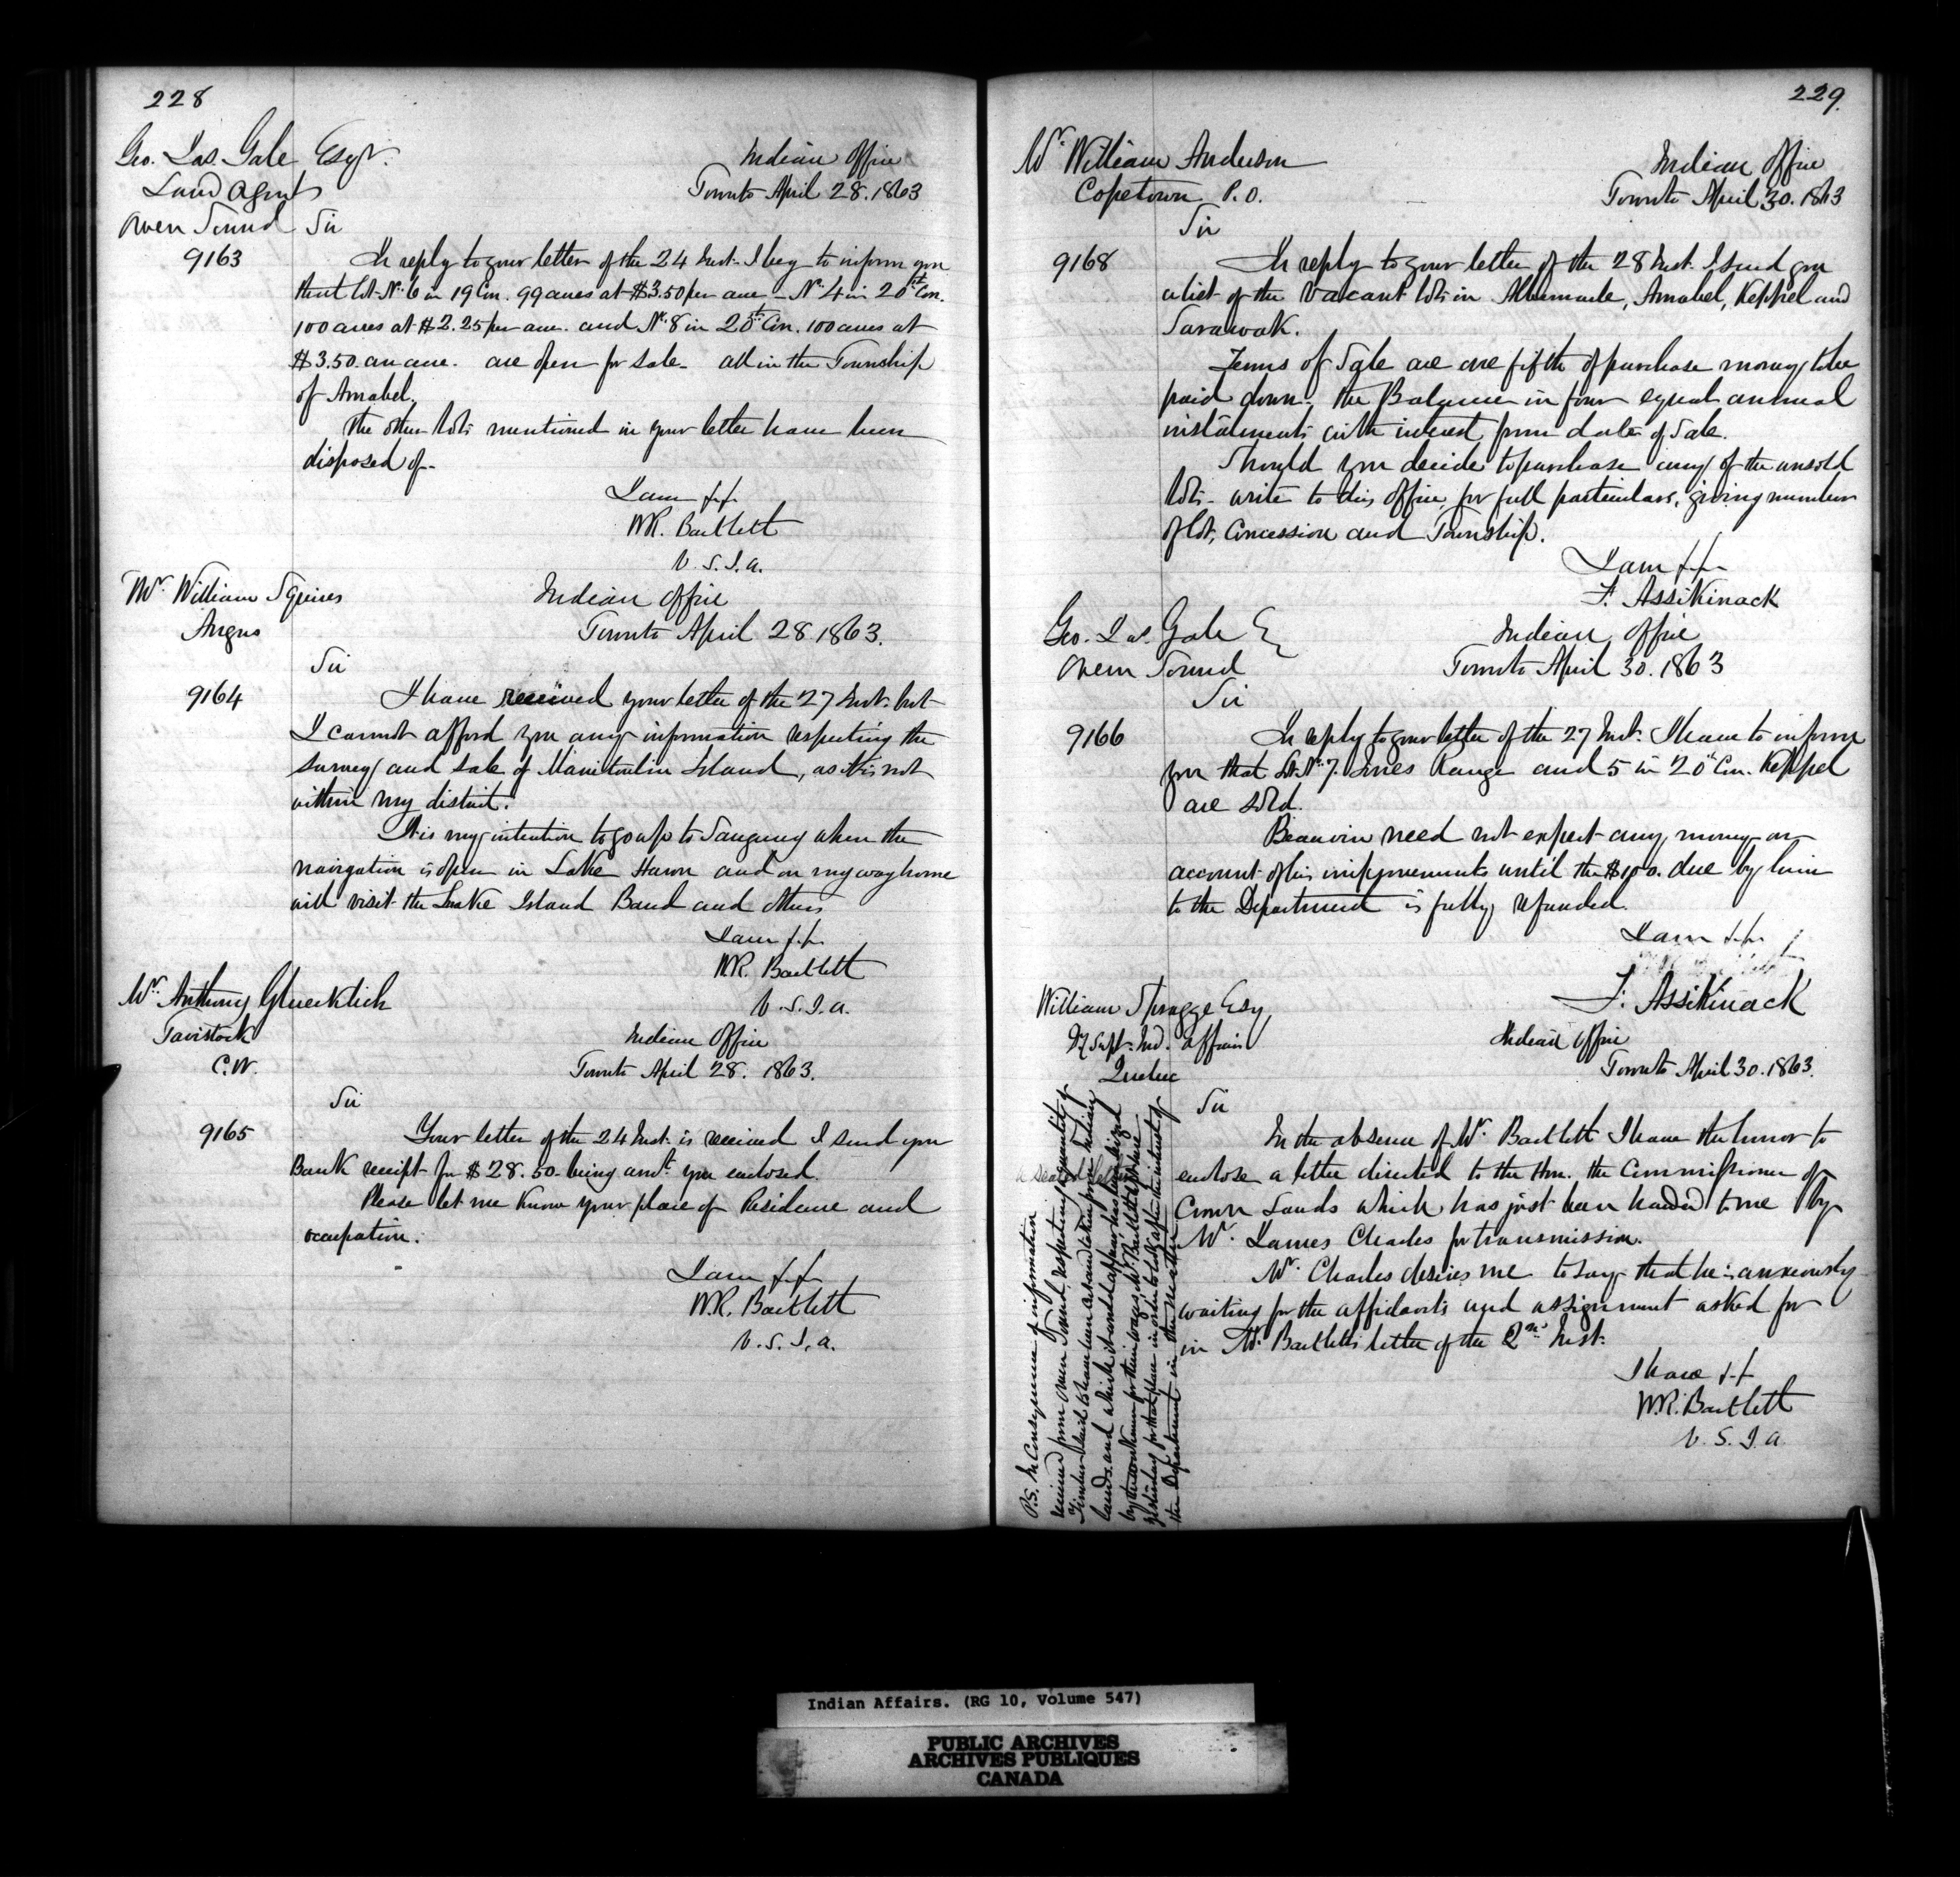 228
Geo. Jas. Gale Esqr.
Land Agent
Owen Sound
Indian Office
Toronto April 28. 1863
Sir
9163
In reply to your letter of the 24 Inst. I beg to inform you
that lot No. 6 in 19 Con. 99 acres at $3.50 per acre - No. 4 in 20th Con.
100 acres at $2.25 per acre. and No. 8 in 20th Con. 100 acres at
$3.50. an acre. are open for sale - all in the Township
of Amabel.
The other lots mentioned in your letter have been
disposed of -
I am &c
W.R. Bartlett
V. S. I. A.
Mr. William Squires
Angus
Indian Office
Toronto April 28 1863.
Sir
9164
I have received your letter of the 27 Inst. but
I cannot afford you any information respecting the
survey and sale of Manitoulin Island, as it is not
within my district.
It is my intention to go up to Saugeeng when the
navigation is open in Lake Huron and on my way home
will visit the Snake Island Band and others
I am &c
W.R. Bartlett
V. S. I. A.
Mr. Anthony Gluecklich
Tavistock
C.W.
Indian Office
Toronto April 28. 1863.
Sir
9165
Your letter of the 24 Inst. is received I send you
Bank receipt for $28.50 being amt. you enclosed.
Please let me know your place of Residence and
occupation.
I am &c
W.R. Bartlett
V. S. I. A.
229.
Mr. William Anderson
Copetown P.O.
Indian Office
Toronto April 30. 1863
Sir
9168
In reply to your letter of the 28 Inst. I send you
a list of the Vacant lots in Albemarle, Amabel, Keppel and
Sarawak.
Terms of Sale are one fifth of purchase money to be
paid down, the Balance in four equal annual
instalments with interest from date of Sale.
Should you decide to purchase any of the unsold
lots - write to this office for full particulars, giving number
of lot, Concession and Township.
I am &c
F. Assikinack
Geo. Jas. Gale E
Owen Sound
Indian Office
Toronto April 30. 1863
Sir
9166
In reply to your letter of the 27 Inst. I have to inform
you that Lot No. 7. Jones Range and 5 in 20th Con. Keppel
are sold.
Beauvin need not expect any money on
account of his improvements until the $100. due by him
to the Department is fully refunded.
I am &c
F. Assikinack
William Spragge Esq
Dy Supt. Ind. Affairs
Quebec
Indian Office
Toronto April 30. 1863.
Sir
In the absence of Mr. Bartlett I have the honor to
enclose a letter directed to the Hon. the Commissioner of
Crown Lands which has just been handed to me by
Mr. James Charles for transmission.
Mr. Charles desires me to say that he is anxiously
waiting for the affidavits and assignment asked for
in Mr. Bartletts letter of the 2nd Inst.
I have &c
W.R. Bartlett
V. S. I. A
P.S. In Consequence of information
received from Owen Sound, respecting a quantity of
Timber said to have been cut and taken from Indian
lands and which it would appear has been seized
by the workmen for their wages, Mr. Bartlett left here
yesterday for that place in order to look after the interest of
the Department in the matter
Indian Affairs. (RG 10, Volume 547)
PUBLIC ARCHIVES
ARCHIVES PUBLIQUES
CANADA